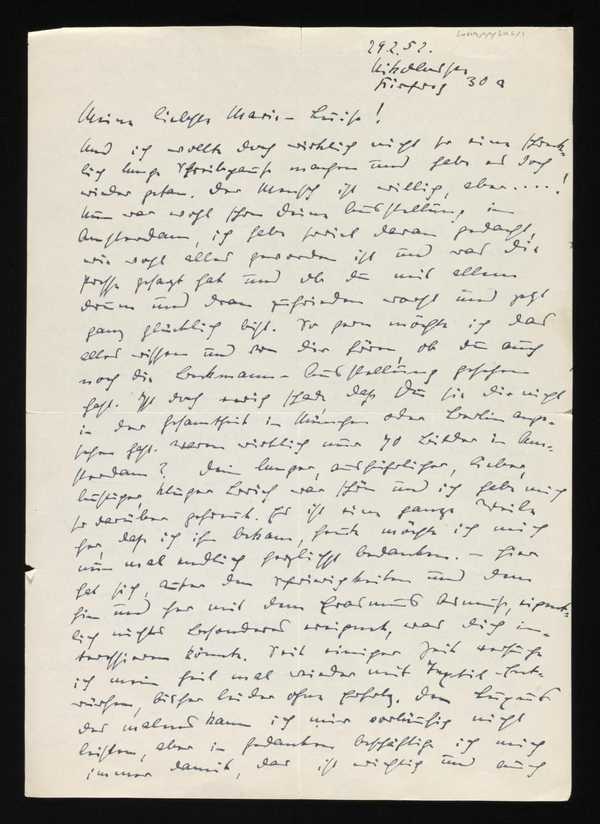 29.2.52.
30 a
Meine liebste Marie-Luise!
Und ich wollte doch wirklich nicht so eine schreck-
lich lange Schreibpause machen und habe es doch
wieder getan. Der Mensch ist willig, aber....!
Nun war wohl schon Deine Ausstellung in
Amsterdam, ich habe soviel daran gedacht,
wie wohl alles geworden ist und was die
Presse gesagt hat und ob du mit allem
drum und dran zufrieden warst und jetzt
ganz glücklich bist. So gern möchte ich das
alles wissen und von dir hören, ob du auch
noch die Beckmann-Ausstellung gesehen
hast. Ist doch ewig schade daß Du sie dir nicht
in der Gesamtheit in München oder Berlin ange-
sehen hast. Waren wirklich nur 40 Bilder in Am-
sterdam? Dein langer, ausführlicher, lieber,
lustiger, kluger Brief war schön und ich habe mich
so darüber gefreut. Es ist eine ganze Weile
her, daß ich ihn bekam, heute möchte ich mich
nun mal endlich herzlichst bedanken. – Hier
hat sich, außer den Schwierigkeiten und dem
hin und her mit dem Erasmus, eigent-
lich nichts besonderes ereignet, was dich in-
teressieren könnte. Seit einiger Zeit versuche
ich mein Heil mal wieder mit Textil-Ent-
würfen, bisher leider ohne Erfolg. Den Luxus
des malens kann ich mir vorläufig nicht
leisten, aber in Gedanken beschäftige ich mich
immer damit, das ist wichtig und auch